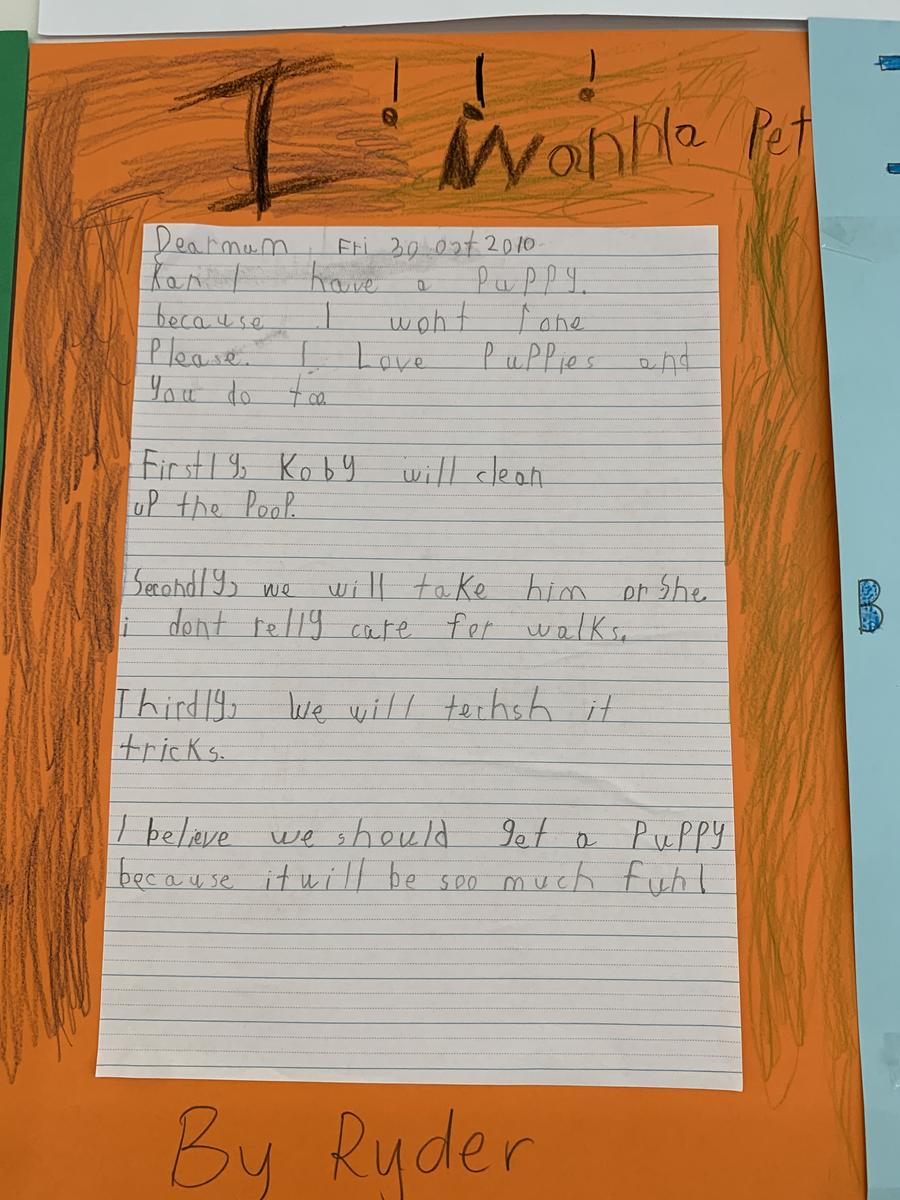 I !!! Wanna Pet
Dear mum Fri 30 oct 2010
Kan I have a PuPPY.
because I wont 1 one
Please. I Love PuPPies and
You do too
Firstly, Koby will clean
uP the PooP.
Secondly, we will take him or She
i dont relly care for walks.
Thirdly, We will techsh it
tricks.
I believe we should get a PuPPY
because it will be soo much fun!
By Ryder
B